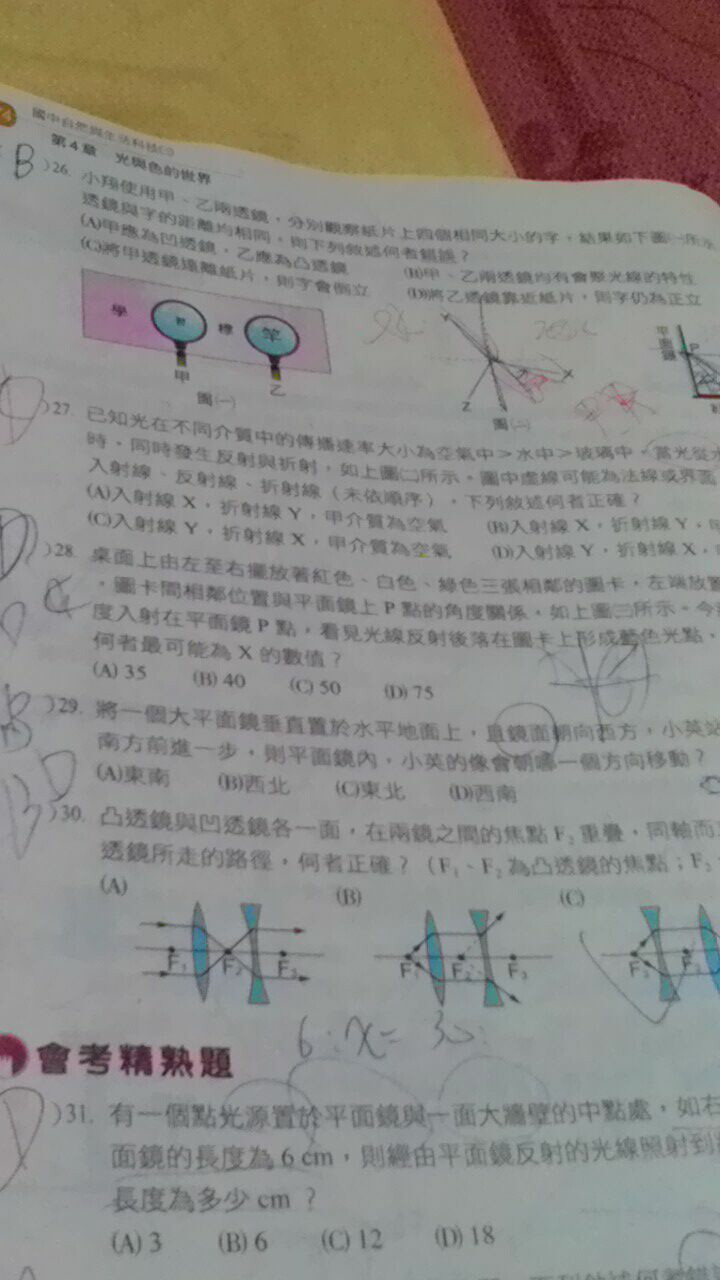 國中自然與生活科技(三)
第4章 光與色的世界
(B)26. 小翔使用甲、乙兩透鏡，分別觀察紙片上四個相同大小的字，結果如下圖(一)所示
透鏡與字的距離均相同，則下列敘述何者錯誤？
(A)甲應為凹透鏡，乙應為凸透鏡 (B)甲、乙兩透鏡均有會聚光線的特性
(C)將甲透鏡遠離紙片，則字會倒立 (D)將乙透鏡靠近紙片，則字仍為正立
學 標 竿
甲 乙
圖(一)
Y X
Z
圖(二)
平面鏡 P
)27. 已知光在不同介質中的傳播速率大小為空氣中＞水中＞玻璃中。當光從
時，同時發生反射與折射，如上圖(二)所示。圖中虛線可能為法線或界面
入射線、反射線、折射線（未依順序），下列敘述何者正確？
(A)入射線 X，折射線 Y，甲介質為空氣 (B)入射線 X，折射線 Y，
(C)入射線 Y，折射線 X，甲介質為空氣 (D)入射線 Y，折射線 X，
(D)28. 桌面上由左至右擺放著紅色、白色、綠色三張相鄰的圖卡，左端放置
，圖卡間相鄰位置與平面鏡上 P 點的角度關係，如上圖(三)所示。今
度入射在平面鏡 P 點，看見光線反射後落在圖卡上形成藍色光點，
何者最可能為 X 的數值？
(A) 35 (B) 40 (C) 50 (D) 75
(B)29. 將一個大平面鏡垂直置於水平地面上，且鏡面朝向西方，小英站
南方前進一步，則平面鏡內，小英的像會朝哪一個方向移動？
(A)東南 (B)西北 (C)東北 (D)西南
)30. 凸透鏡與凹透鏡各一面，在兩鏡之間的焦點 F₂ 重疊，同軸而
透鏡所走的路徑，何者正確？（F₁、F₂ 為凸透鏡的焦點；F₂
(A) (B) (C)
F₁ F₂ F₃ F₁ F₂ F₃ F₁ F₂
6 : x =
會考精熟題
)31. 有一個點光源置於平面鏡與一面大牆壁的中點處，如右
面鏡的長度為 6 cm，則經由平面鏡反射的光線照射到
長度為多少 cm ？
(A) 3 (B) 6 (C) 12 (D) 18